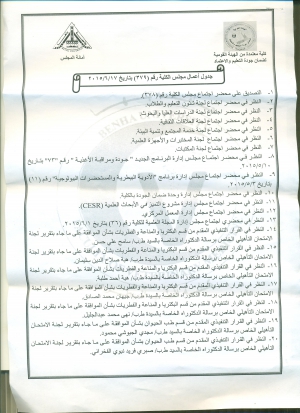 كلية معتمدة من الهيئة القومية
لضمان جودة التعليم والاعتماد
أمانة المجلس
جدول أعمال مجلس الكلية رقم (٣٧٩) بتاريخ ٢٠١٥/٦/١٧
١- التصديق على محضر اجتماع مجلس الكلية رقم (٣٧٨).
٢- النظر في محضر اجتماع لجنة شئون التعليم والطلاب.
٣- النظر في محضر اجتماع لجنة الدراسات العليا والبحوث.
٤- النظر في محضر اجتماع لجنة العلاقات الثقافية.
٥- النظر في محضر اجتماع لجنة خدمة المجتمع وتنمية البيئة.
٦- النظر في محضر اجتماع لجنة المختبرات والأجهزة العلمية.
٧- النظر في محضر اجتماع لجنة المكتبات.
٨- النظر في محضر اجتماع مجلس إدارة البرنامج الجديد "جودة ومراقبة الأغذية" رقم "٧٣" بتاريخ
٩- النظر في محضر اجتماع مجلس إدارة برنامج "الأدوية البيطرية والمستحضرات البيولوجية" رقم (١١)
بتاريخ ٢٠١٥/٥/٣
١٠- النظر في محضر اجتماع مجلس إدارة وحدة ضمان الجودة بالكلية.
١١- النظر في محضر اجتماع مجلس إدارة مشروع التميز في الأبحاث العلمية (CESR)
١٢- النظر في محضر اجتماع مجلس إدارة المعمل المركزي.
١٣- النظر في محضر اجتماع مجلس إدارة المجلة العلمية للكلية رقم (٣٦) بتاريخ
١٤- النظر في القرار التنفيذي المقدم من قسم البكتريا والمناعة والفطريات بشأن الموافقة على ما جاء بتقرير لجنة
الامتحان التأهيلي الخاص برسالة الدكتوراه الخاصة بالسيد ط.ب/
١٥- النظر في القرار التنفيذي المقدم من قسم البكتريا والمناعة والفطريات بشأن الموافقة على ما جاء بتقرير لجنة
الامتحان التأهيلي الخاص برسالة الدكتوراه الخاصة بالسيدة ط.ب/ هبة صلاح الدين سليمان.
١٦- النظر في القرار التنفيذي المقدم من قسم البكتريا والمناعة والفطريات بشأن الموافقة على ما جاء بتقرير لجنة
الامتحان التأهيلي الخاص برسالة الدكتوراه الخاصة بالسيدة ط.ب/ هبة أحمد
١٧- النظر في القرار التنفيذي المقدم من قسم البكتريا والمناعة والفطريات بشأن الموافقة على ما جاء بتقرير لجنة
الامتحان التأهيلي الخاص برسالة الدكتوراه الخاصة بالسيدة ط.ب/ جيهان محمد الصادق.
١٨- النظر في القرار التنفيذي المقدم من قسم البكتريا والمناعة والفطريات بشأن الموافقة على ما جاء بتقرير لجنة
الامتحان التأهيلي الخاص برسالة الدكتوراه الخاصة بالسيدة ط.ب/ نهى محمد عبدالجليل.
١٩- النظر في القرار التنفيذي المقدم من قسم طب الحيوان بشأن الموافقة على ما جاء بتقرير لجنة الامتحان
التأهيلي الخاص برسالة الدكتوراه الخاصة بالسيد ط.ب/ مجدي الجيوشي محمود.
٢٠- النظر في القرار التنفيذي المقدم من قسم طب الحيوان بشأن الموافقة على ما جاء بتقرير لجنة الامتحان
التأهيلي الخاص برسالة الدكتوراه الخاصة بالسيد ط.ب/ صبري فريد ابوزي الفخراني.